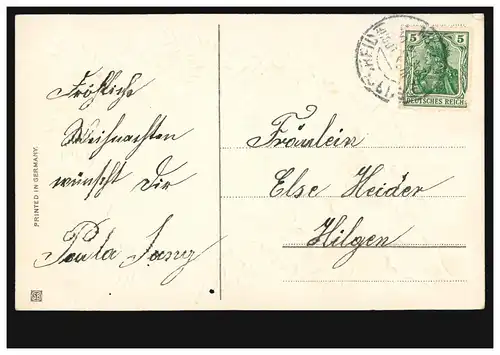 Fröhliche
Weihnachten
wünscht Dir
Paula
PRINTED IN GERMANY.
5 5
DEUTSCHES REICH
Fräulein
Else Heider
Hilgen